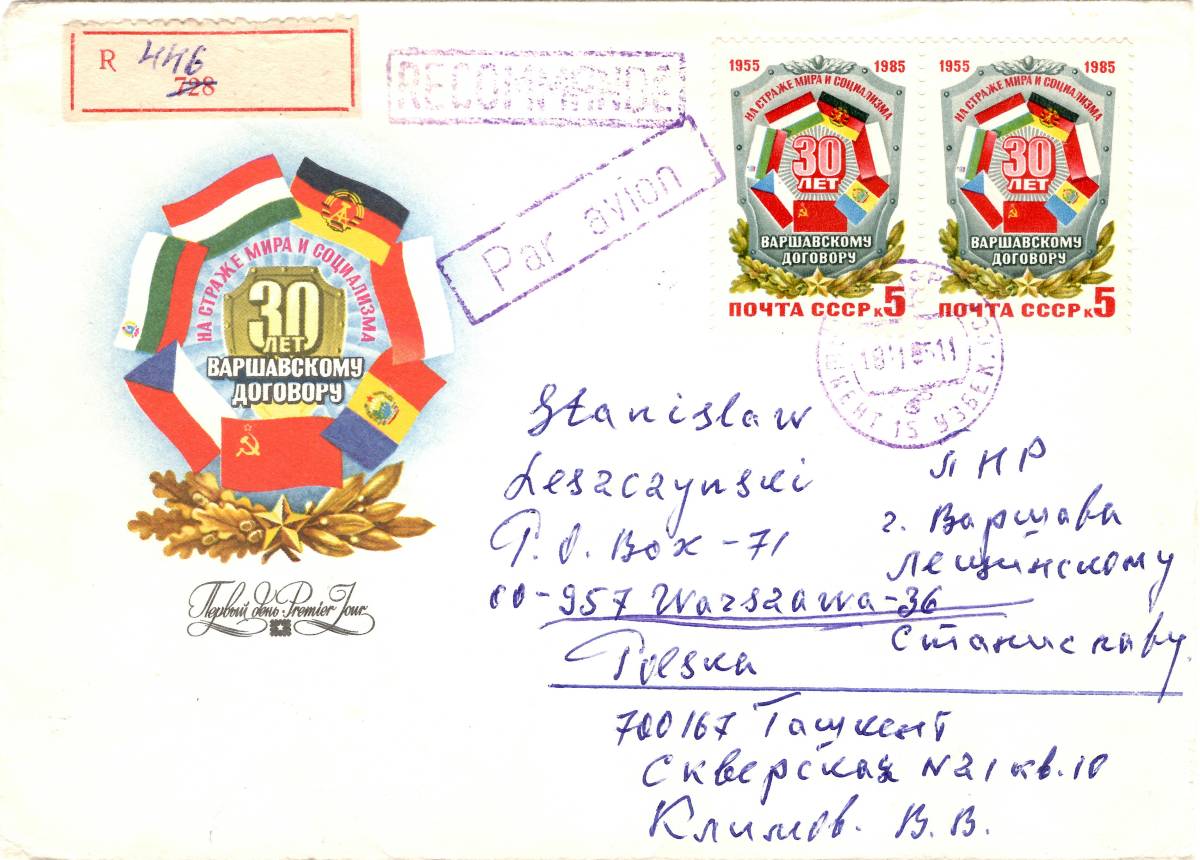 R 446
728
RECOMMANDE
Par avion
1955 1985
НА СТРАЖЕ МИРА И СОЦИАЛИЗМА
30
ЛЕТ
ВАРШАВСКОМУ
ДОГОВОРУ
ПОЧТА СССР к 5
1955 1985
НА СТРАЖЕ МИРА И СОЦИАЛИЗМА
30
ЛЕТ
ВАРШАВСКОМУ
ДОГОВОРУ
ПОЧТА СССР к 5
НА СТРАЖЕ МИРА И СОЦИАЛИЗМА
30
ЛЕТ
ВАРШАВСКОМУ
ДОГОВОРУ
Первый день · Premier Jour
15 УЗБЕК.
Stanislaw
Leszczynski
P.O. Box - 71
00-957 Warszawa-36
Polska
ПНР
г. Варшава
Лещинскому
Станиславу
700167 Ташкент
Скверская N21 кв. 10
Климов. В. В.